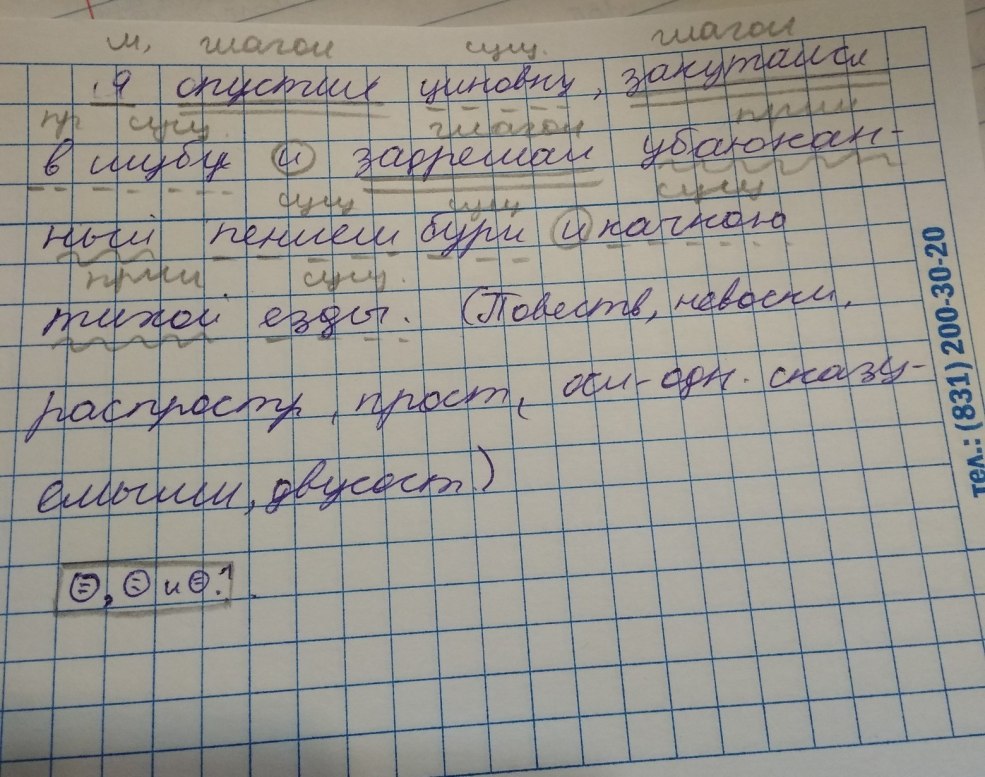 м. глагол сущ. глагол
Я опустил циновку, закутался
пр сущ. глагол прил
в шубу и задремал убаюкан-
сущ сущ сущ
ный пением бури и качкою
прил сущ.
тихой езды. (Повеств, невоскл,
распростр, прост, осл-одн. сказу-
емыми, двусост.)
⊜, ⊜ и ⊜.
тел.: (831) 200-30-20